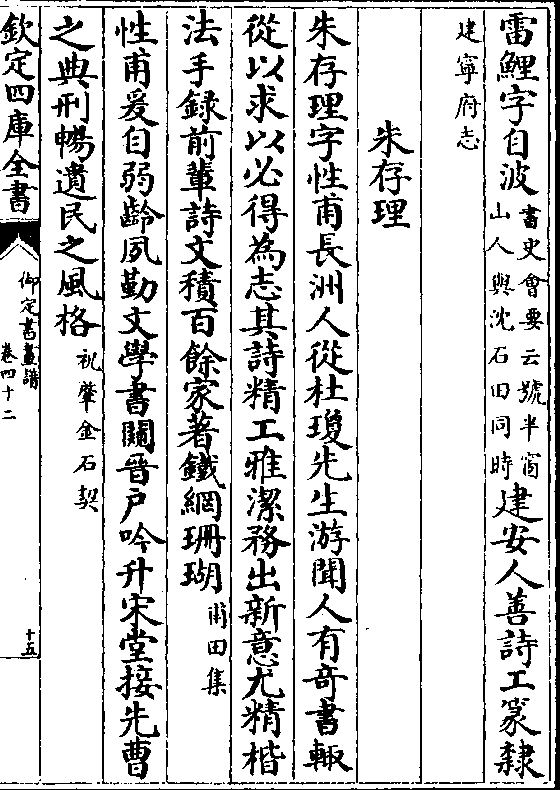 雷鯉字自波書史會要云號半窗山人與沈石田同時建安人善詩工篆隸
建寧府志
朱存理
朱存理字性甫長洲人從杜瓊先生游聞人有奇書輙
從以求以必得為志其詩精工雅潔務出新意尤精楷
法手録前輩詩文積百餘家著鐵網珊瑚甫田集
性甫爰自弱齡夙勤文學書闚晉戸吟升宋堂接先曹
之典刑暢遺民之風格祝肇金石契
欽定四庫全書
御定書畫譜
卷四十二
十五